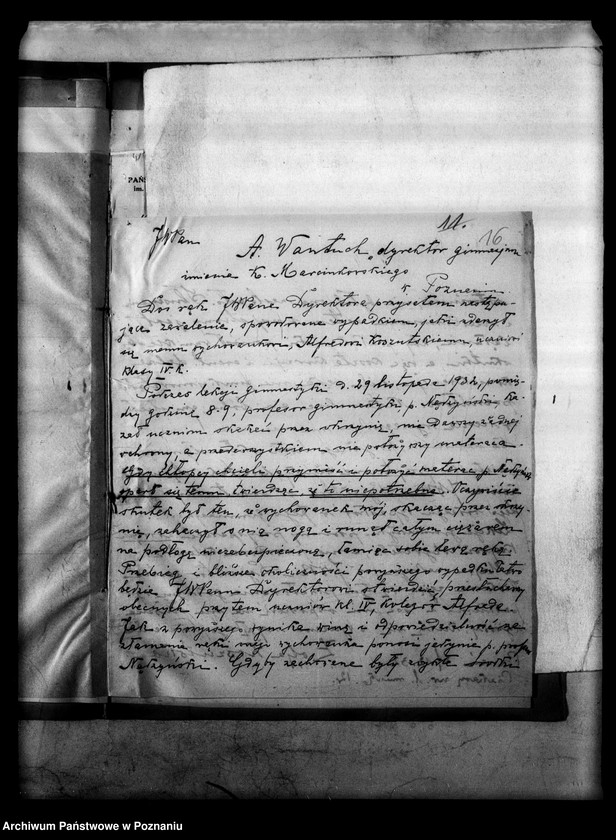 11.
16
JWPan
A. Wantuch, dyrektor gimnazjum
imienia K. Marcinkowskiego
w Poznaniu
PAŃ
Im.
Do rąk JWPana Dyrektora przysyłam nastepu-
jące zażalenie, spowodowane wypadkiem, jaki zdarzył
się memu wychowankowi, Alfredowi Koszutskiemu, uczniowi
klasy IV. K.
Podczas lekcji gimnastyki d. 29 listopada 1932, pomię-
dzy godziną 8-9, profesor gimnastyki, p. ka-
zał uczniom skakać przez skrzynię, nie dawszy żadnej
ochrony, a przedewszystkiem nie położywszy materaca.
Gdy chłopcy chcieli przynieść i położyć materac p.
oparł się temu twierdząc, że to niepotrzebne. Oczywiście
skutek był ten, że wychowanek mój, skacząc przez skrzy-
nię, zahaczył o nią nogą i runął całym ciężarem
na podłogę niezabezpieczoną, łamiąc sobie lewą rękę.
Przebieg i bliższe okoliczności powyższego wypadku łatwo
będzie JWPanu Dyrektorowi stwierdzić przesłuchawszy
obecnych przytem uczniów kl. IV, kolegów Alfreda.
Jak z powyższego wynika winę i odpowiedzialność za
złamanie ręki mego wychowanka ponosi jedynie p. prof.
Gdyby zachowane były zwykłe środki
Archiwum Państwowe w Poznaniu